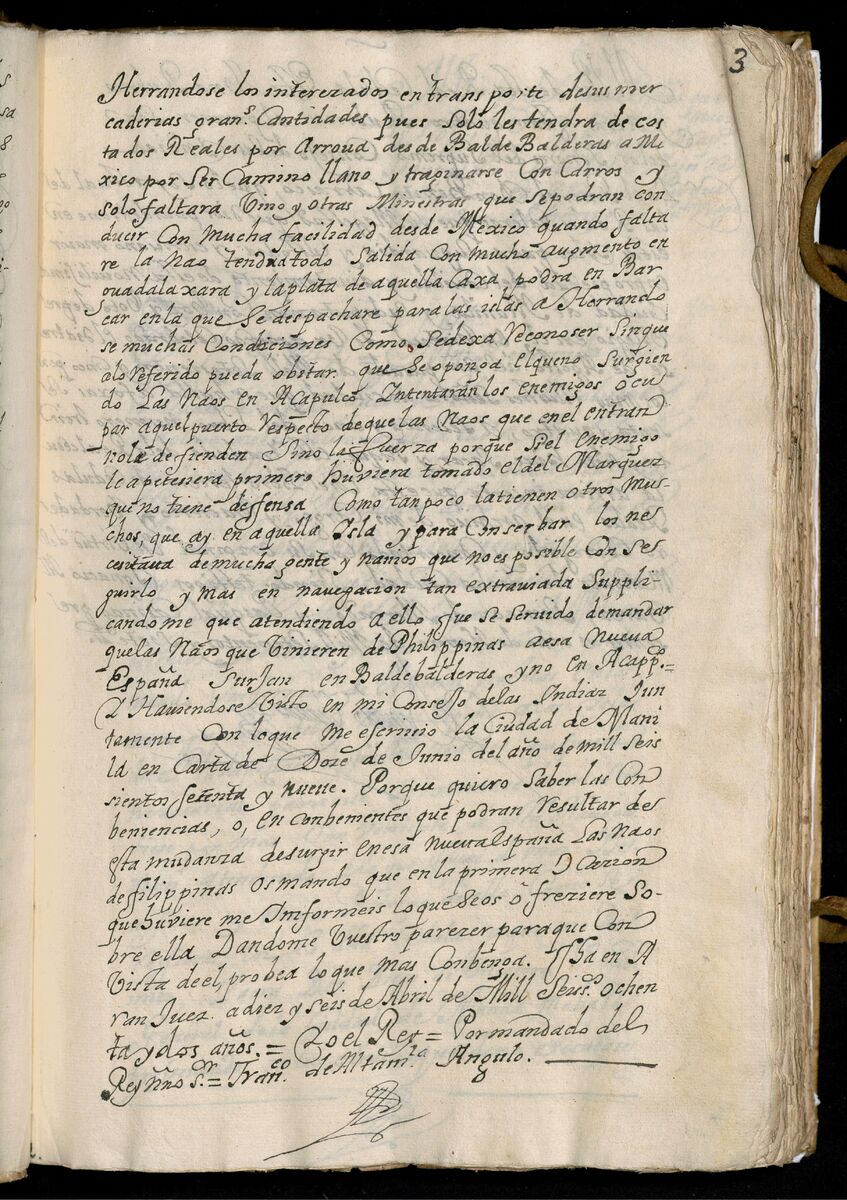 3
Herrandose los interezados en transporte desus mer
caderias gran.s Cantidades pues solo les tendra de cos
ta dos Reales por Arroua desde Balde Balderas a Me
xico por ser Camino llano y traginarse Con Carros y
solo faltara Vino y otras Menestras que sepodran con
ducir Con Mucha facilidad desde Mexico quando falta
re la Nao tendra todo Salida Con mucho Augmento en
Guadalaxara y laplata de aquella Caxa podra en Bar
car en la que se despachare para las islas a Herrando
se muchas Condiciones Como sedexa Reconoser Sin que
alo Referido pueda obstar que se oponga elqueno Surgien
do Las Naos en Acapulco Intentaran los enemigos ocu
par aquel puerto Respecto de que las Naos que en el entran
nole defienden Sino la fuerza porque si el enemigo
le apeteciera primero huviera tomado el del Marquez
que no tiene defensa Como tanpoco latienen otros mu
chos, que ay en aquella Isla y para Conserbar los ne
cesitava de mucha gente y Navios que no es posible Con se
guirlo y mas en navegacion tan extraviada Suppli
candome que atendiendo a ello fue se servido demandar
quelas Naos que Vinieren de Philippinas aesa Nueva
España Surjan en Baldebalderas y no en Acapp.co =
Y Haviendose Visto en mi Consejo delas Indias Jun
tamente Con loque me escrivio la Ciudad de Mani
la en Carta de Doze de Junio del año de mill seis
sientos setenta y nueve. Porque quiero saber las Con
beniencias, o, en conbenientes que podran resultar de
esta mudanza desurgir en esa nueva España Las Naos
de filippinas os mando que en la primera Ocazion
que huviere me Imformeis loque seos ofreziere So-
bre ella Dandome Vuestro parezer paraque Con
Vista de el, probea lo que mas Conbenga. ffha en A
ranjuez a diez y seis de Abril de Mill Seis.os ochen
ta y dos años. = Yo el Rey = Por mandado del
Rey nño s.or = Fran.co de Altam.ra Angulo.